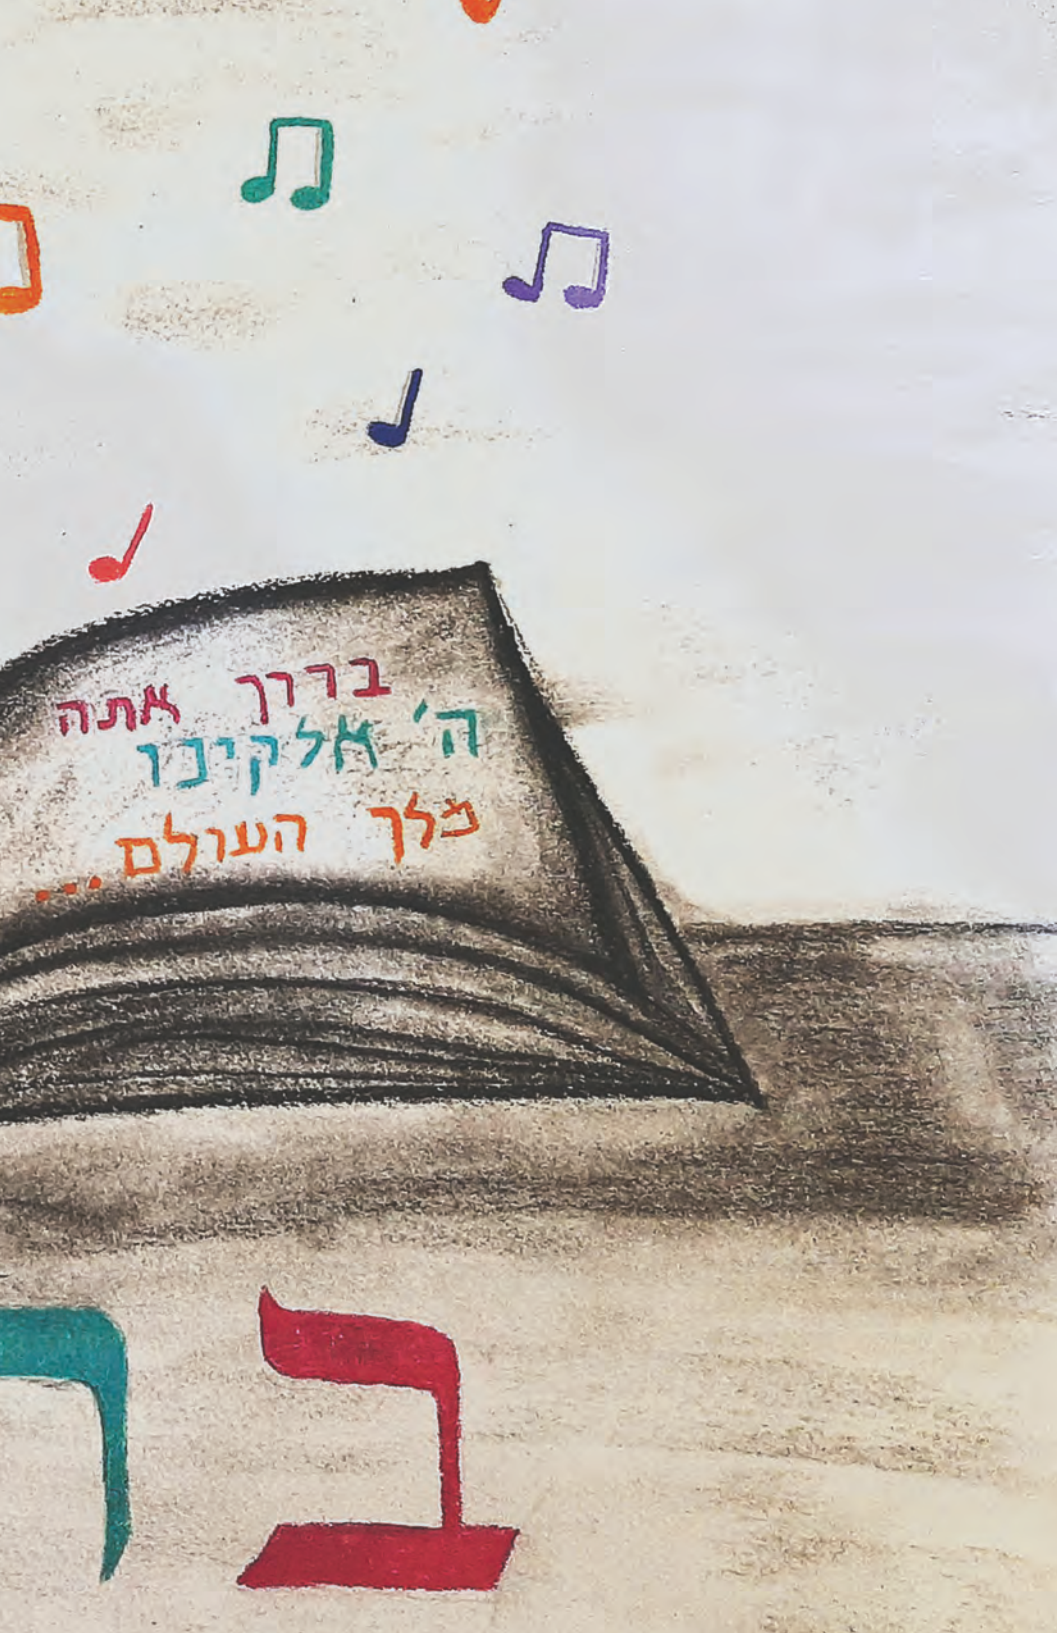 ברוך אתה
ה' אלקינו
מלך העולם...
בר